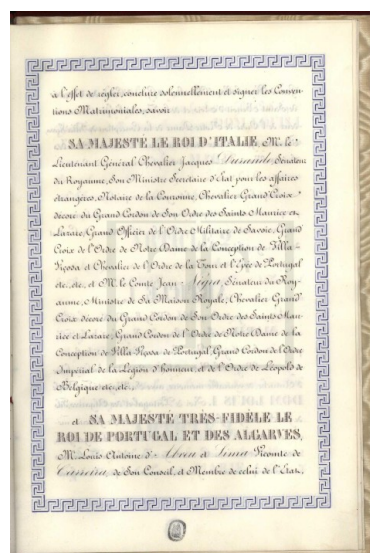 à l'effet de régler, conclure solennellement et signer les Conven-
tions Matrimoniales, savoir
SA MAJESTÉ LE ROI D'ITALIE, Mr. le
Lieutenant Général Chevalier Jacques Durando, Sénateur
du Royaume, Son Ministre Secrétaire d'État pour les affaires
étrangères, Notaire de la Couronne, Chevalier Grand'Croix
décoré du Grand Cordon de Son Ordre des Saints Maurice et
Lazare, Grand Officier de l'Ordre Militaire de Savoie, Grand
Croix de l'Ordre de Notre Dame de la Conception de Villa-
Viçosa et Chevalier de l'Ordre de la Tour et l'Épée de Portugal
etc. etc. et M. le Comte Jean Nigra, Sénateur du Roy-
aume, Ministre de Sa Maison Royale, Chevalier Grand'
Croix décoré du Grand Cordon de Son Ordre des Saints Mau-
rice et Lazare, Grand Cordon de l'Ordre de Notre Dame de la
Conception de Villa Viçosa de Portugal, Grand Cordon de l'Ordre
Impérial de la Légion d'honneur et de l'Ordre de Léopold de
Belgique etc. etc.
et SA MAJESTÉ TRÈS-FIDÈLE LE
ROI DE PORTUGAL ET DES ALGARVES,
M. Louis Antoine d'Abreu et Lima Vicomte de
Carreira, de Son Conseil, et Membre de celui de l'État,